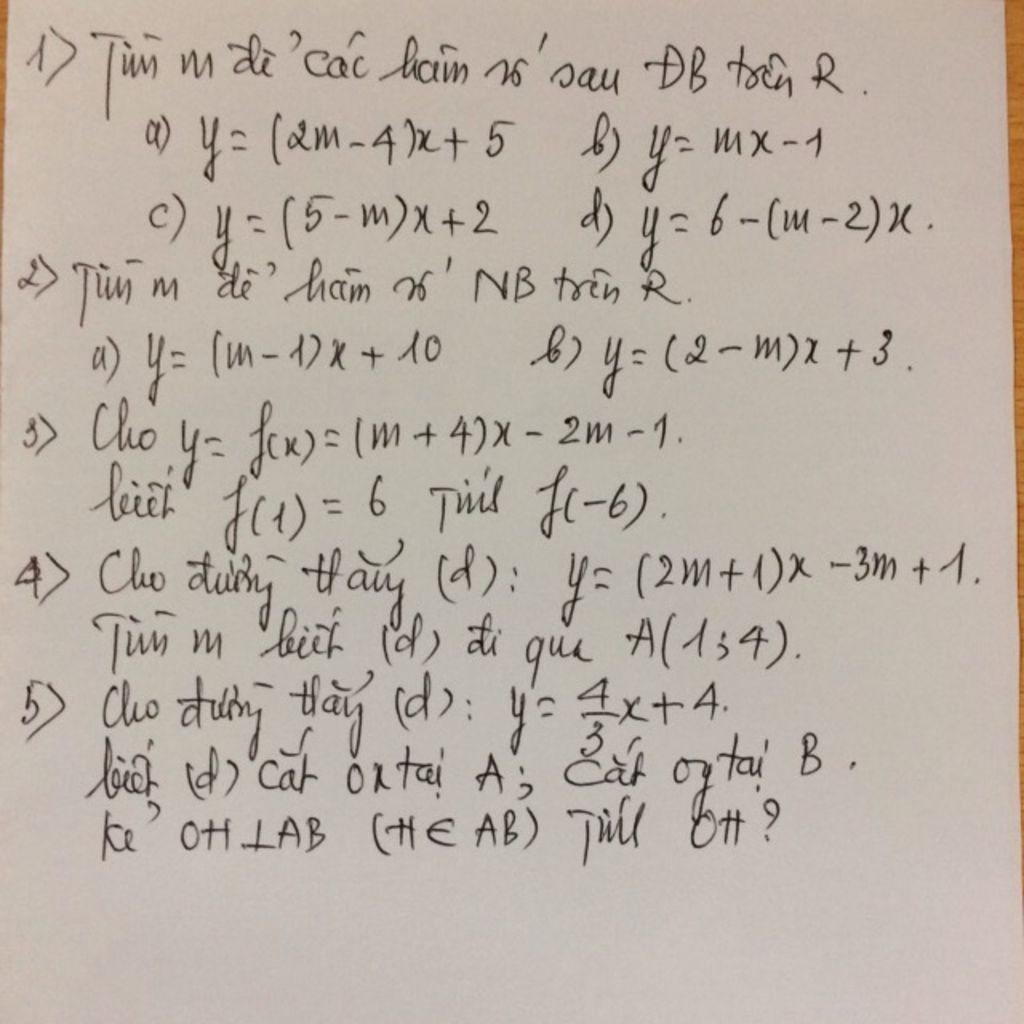 1) Tìm m để các hàm số sau ĐB trên R.
a) y = (2m-4)x + 5 b) y = mx - 1
c) y = (5-m)x + 2 d) y = 6 - (m-2)x.
2) Tìm m để hàm số NB trên R.
a) y = (m-1)x + 10 b) y = (2-m)x + 3.
3) Cho y = f(x) = (m+4)x - 2m - 1.
biết f(1) = 6 Tính f(-6).
4) Cho đường thẳng (d): y = (2m+1)x - 3m + 1.
Tìm m biết (d) đi qua A(1;4).
5) Cho đường thẳng (d): y = 4/3 x + 4.
biết (d) cắt ox tại A; cắt oy tại B.
kẻ OH ⊥ AB (H ∈ AB) Tính OH?